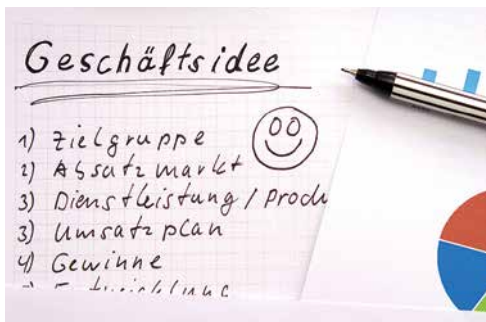 Geschäftsidee
1) Zielgruppe
2) Absatzmarkt
3) Dienstleistung / Produ
3) Umsatzplan
4) Gewinne